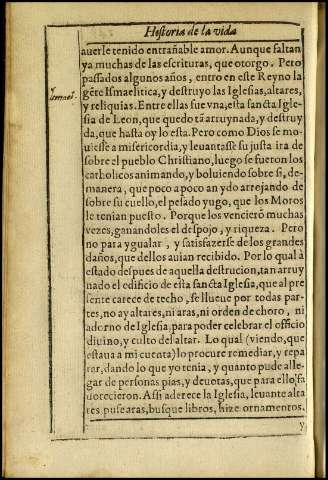 Historia de la vida
auerle tenido entrañable amor. Aunque faltan
ya muchas de las escrituras, que otorgo. Pero
passados algunos años, entro en este Reyno la
gẽte Ismaelitica, y destruyo las Iglesias, altares,
y reliquias. Entre ellas fue vna, esta sancta Igle-
sia de Leon, que quedo tã arruynada, y destruy
da, que hasta oy lo esta. Pero como Dios se mo-
uiesse a misericordia, y leuantasse su justa ira de
sobre el pueblo Christiano, luego se fueron los
catholicos animando, y boluiendo sobre si, de-
manera, que poco a poco an ydo arrejando de
sobre su cuello, el pesado yugo, que los Moros
le tenian puesto. Porque los vencierõ muchas
vezes, ganandoles el despojo, y riqueza. Pero
no para ygualar, y satisfazerse de los grandes
daños, que dellos auian recibido. Por lo qual à
estado despues de aquella destrucion, tan arruy
nado el edificio de esta sancta Iglesia, que al pre
sente carece de techo, se llueue por todas par-
tes, no ay altares, ni aras, ni orden de choro, ni
adorno de Iglesia, para poder celebrar el officio
diuino, y culto del altar. Lo qual (viendo, que
estaua a mi cuenta) lo procure remediar, y repa
rar, dando lo que yo tenia, y quanto pude alle-
gar de personas pias, y deuotas, que para ello fa
uorecieron. Assi aderece la Iglesia, leuante alta
res puse aras, busque libros, hize ornamentos.
y